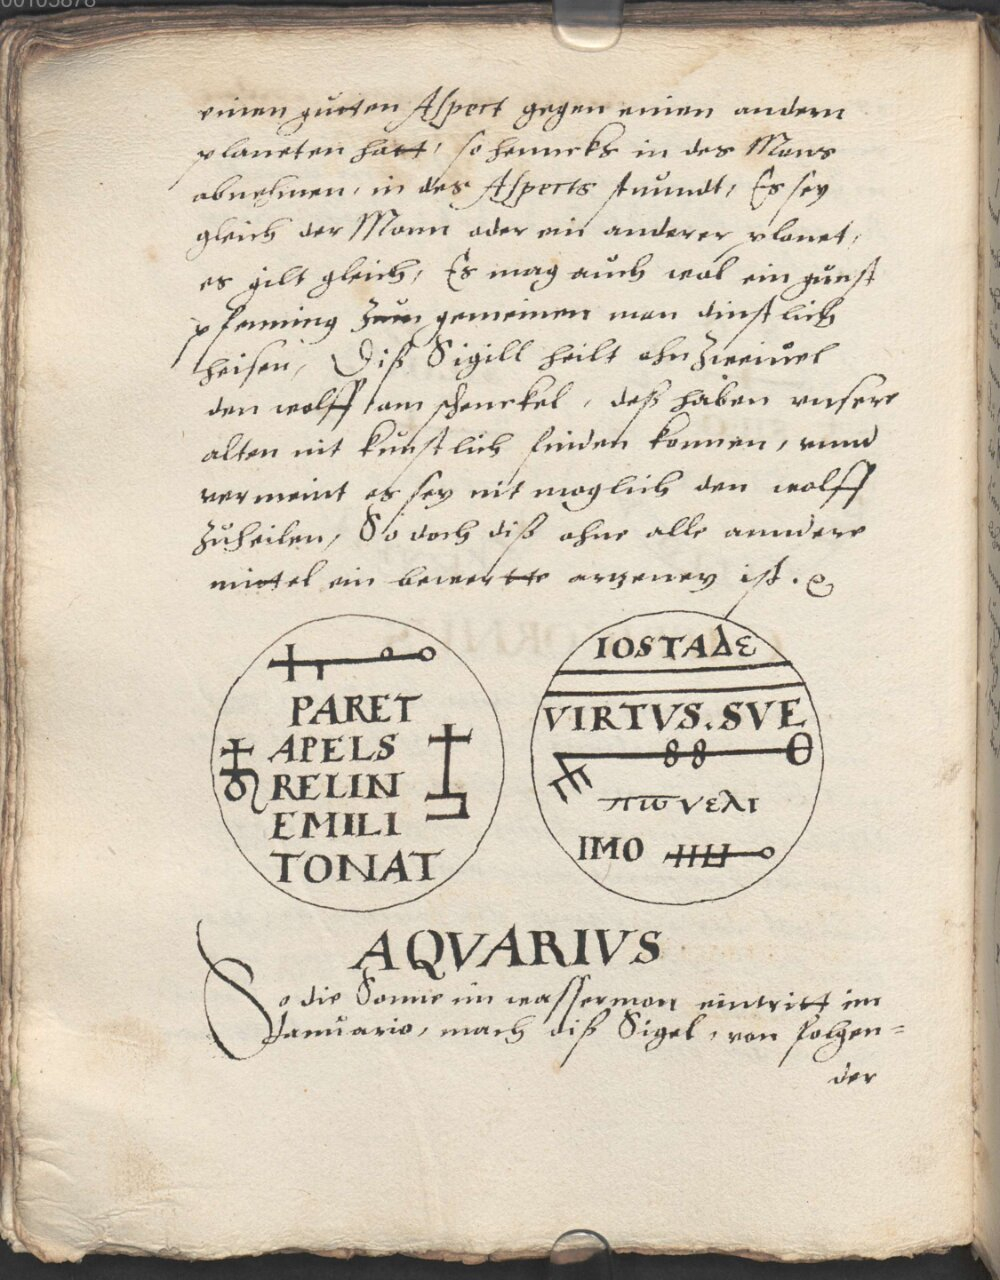 00105878
einen gutten Aspect gegen einen andern
planeten hatt, so hencks in des Mons
abnehmen, in des Aspects stuundt, Es sey
gleich der Monn oder ein anderer planet,
es gilt gleich, Es mag auch wol ein gunst
pfenning zum gemeinen man dinstlich
heisen, Diß Sigill heilt ohn zweiuel
den wolff am schenckel, deß haben vnsere
alten nit kunstlich finden konnen, vnnd
vermeint es sey nit moglich den wolff
zuheilen, So doch diß ohne alle anndere
mittel ein bewertte artzeney ist.
PARET
APELS
RELIN
EMILI
TONAT
IOSTAΔε
VIRTVS. SVE
88
πων ελι
IMO
AQVARIVS
So die Sonne im wasserman eintritt im
Januario, mach diß Sigel, von folgen=
der